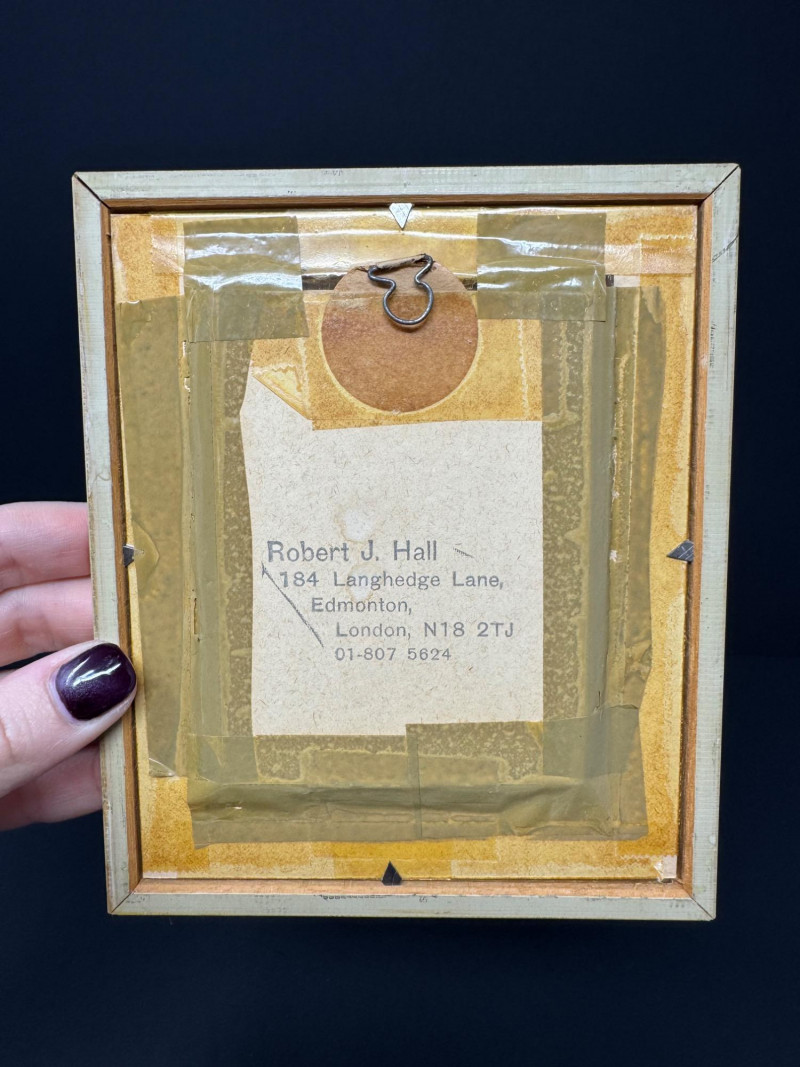 Robert J. Hall
184 Langhedge Lane,
Edmonton,
London, N18 2TJ
01-807 5624